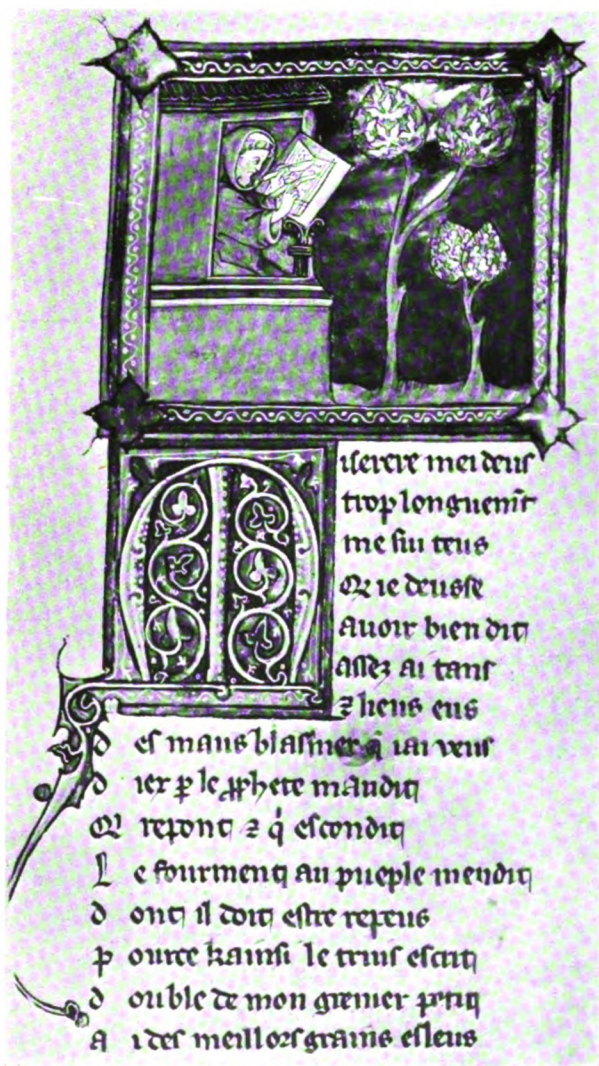 Miserere mei deus
trop longuem̅t
me sui teus
Q̅ ie deusse
auoir bien dit
assez ai tans
⁊ lieus eus
des maus blasmer q̇ iai veus
diex ꝑ le ꝓphete maudit
Q̅ repont ⁊ q̇ escondit
Le fourment au pueple mendit
dont il doit estre repeus
pource kainsi le truis escrit
double de mon grenier petit
ai des meillors grains esleus